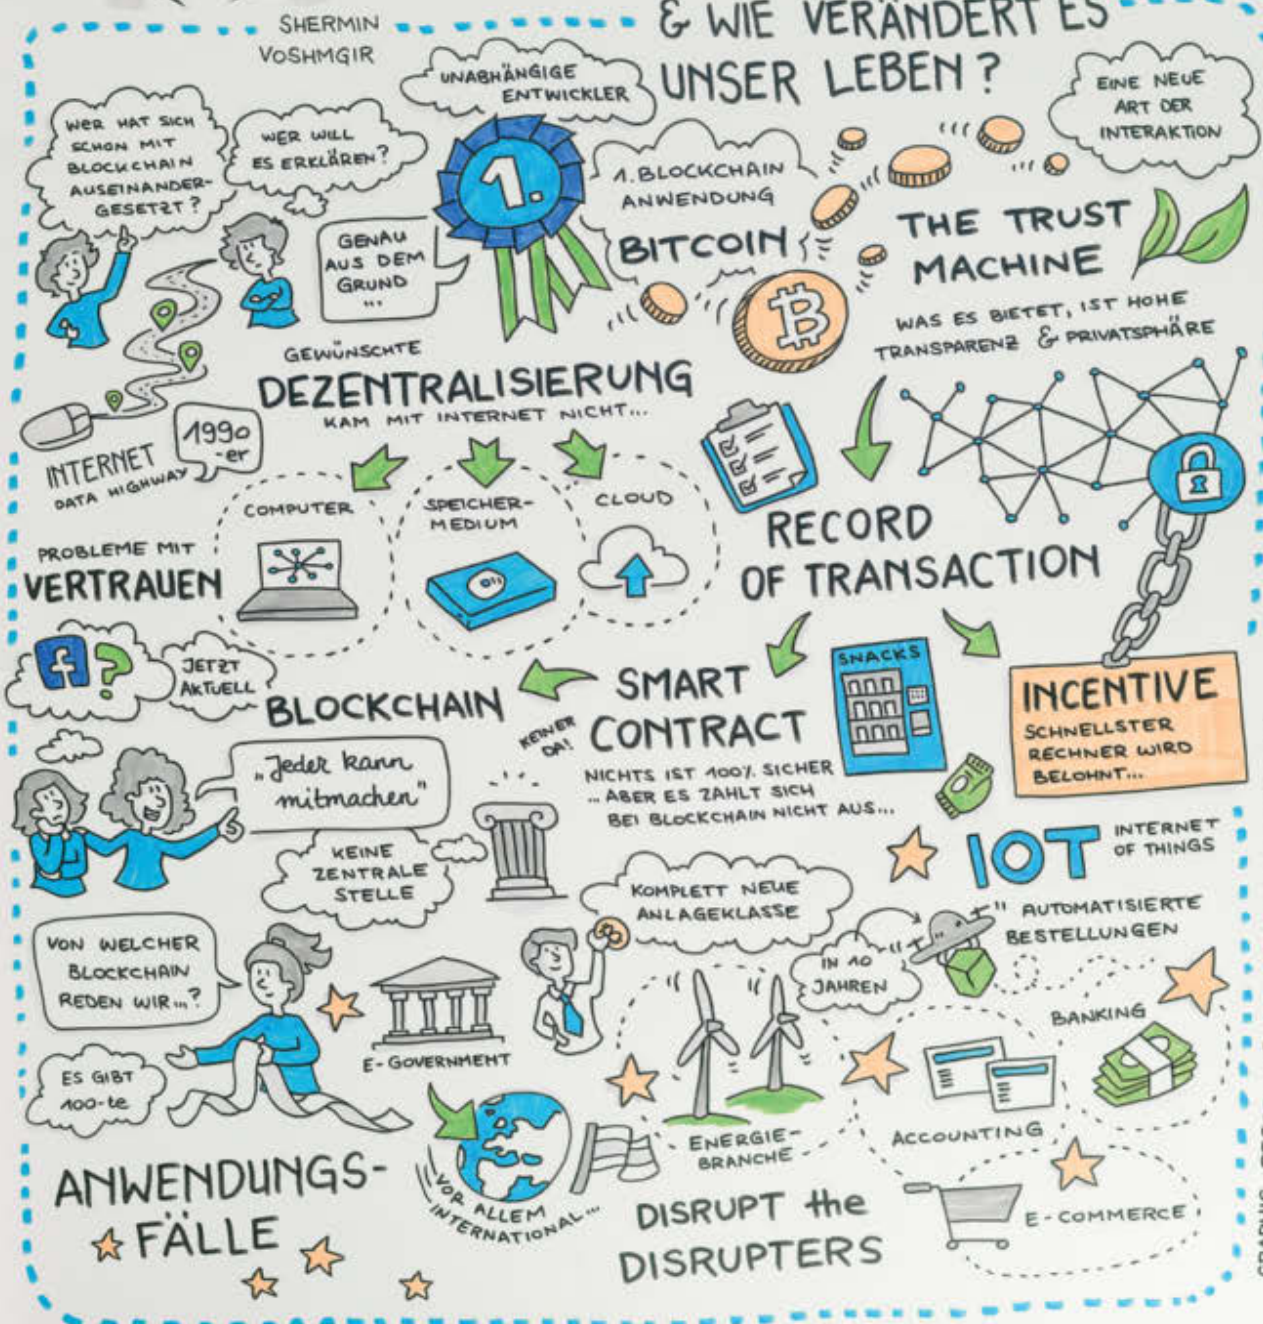 SHERMIN
VOSHMGIR
& WIE VERÄNDERT ES
UNSER LEBEN?
UNABHÄNGIGE
ENTWICKLER
EINE NEUE
ART DER
INTERAKTION
WER HAT SICH
SCHON MIT
BLOCKCHAIN
AUSEINANDER-
GESETZT?
WER WILL
ES ERKLÄREN?
GENAU
AUS DEM
GRUND
...
1.
1. BLOCKCHAIN
ANWENDUNG
BITCOIN
THE TRUST
MACHINE
WAS ES BIETET, IST HOHE
TRANSPARENZ & PRIVATSPHÄRE
GEWÜNSCHTE
DEZENTRALISIERUNG
KAM MIT INTERNET NICHT...
INTERNET
DATA HIGHWAY
1990
-er
COMPUTER
SPEICHER-
MEDIUM
CLOUD
RECORD
OF TRANSACTION
PROBLEME MIT
VERTRAUEN
f?
JETZT
AKTUELL
BLOCKCHAIN
KEINER
DA!
SMART
CONTRACT
NICHTS IST 100% SICHER
... ABER ES ZAHLT SICH
BEI BLOCKCHAIN NICHT AUS...
SNACKS
INCENTIVE
SCHNELLSTER
RECHNER WIRD
BELOHNT...
„Jeder kann
mitmachen"
KEINE
ZENTRALE
STELLE
IOT
INTERNET
OF THINGS
KOMPLETT NEUE
ANLAGEKLASSE
IN 10
JAHREN
AUTOMATISIERTE
BESTELLUNGEN
VON WELCHER
BLOCKCHAIN
REDEN WIR...?
ES GIBT
100-te
E-GOVERNMENT
BANKING
ENERGIE-
BRANCHE
ACCOUNTING
ANWENDUNGS-
FÄLLE
VOR ALLEM
INTERNATIONAL...
DISRUPT the
DISRUPTERS
E-COMMERCE